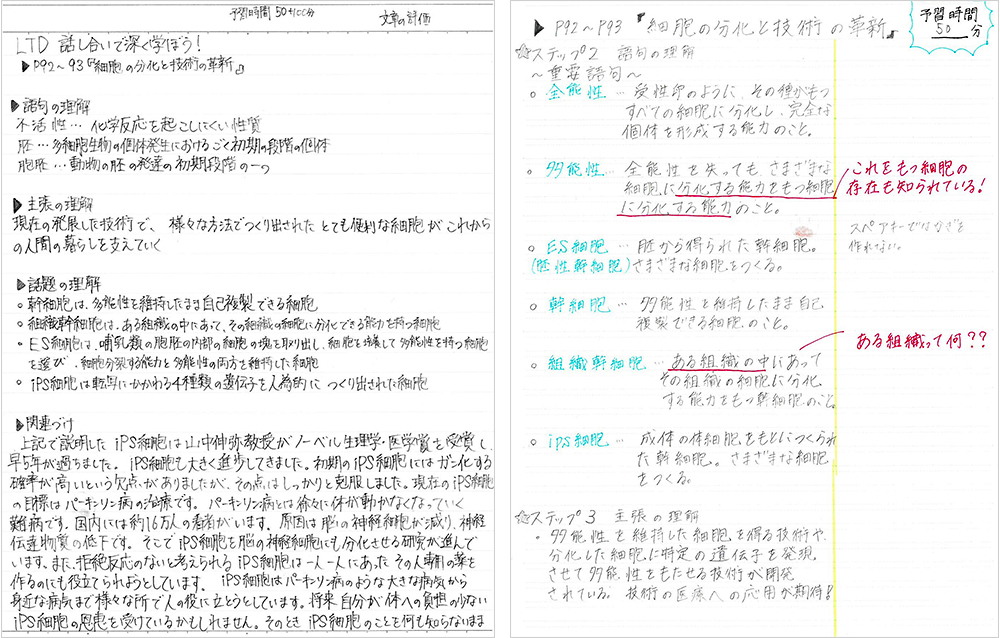 予習時間 50+100分
文章の評価
LTD 話し合いで深く学ぼう！
▶P92～93『細胞の分化と技術の革新』
▶語句の理解
不活性… 化学反応を起こしにくい性質
胚…多細胞生物の個体発生におけるごく初期の段階の個体
胞胚…動物の胚の発達の初期段階の一つ
▶主張の理解
現在の発展した技術で、様々な方法でつくり出されたとても便利な細胞がこれから
の人間の暮らしを支えていく
▶話題の理解
○幹細胞は、多能性を維持したまま自己複製できる細胞
○組織幹細胞は、ある組織の中にあって、その組織の細胞に分化できる能力を持つ細胞
○ES細胞は、哺乳類の胞胚の内部の細胞の塊を取り出し、細胞を培養して多能性を持つ細胞
を選び、細胞分裂する能力と多能性の両方を維持した細胞
○iPS細胞は転写にかかわる4種類の遺伝子を人為的につくり出された細胞
▶関連づけ
上記で説明したiPS細胞は山中伸弥教授がノーベル生理学・医学賞を受賞し、
早5年が過ちました。iPS細胞も大きく進歩してきました。初期のiPS細胞にはガン化する
確率が高いという欠点がありましたが、その点はしっかりと克服しました。現在のiPS細胞
の目標はパーキンソン病の治療です。パーキンソン病とは徐々に体が動かなくなっていく
難病です。国内には約16万人の患者がいます。原因は脳の神経細胞が減り、神経
伝達物質の低下です。そこでiPS細胞を脳の神経細胞にも分化させる研究が進んで
います。また、拒絶反応のないと考えられるiPS細胞は一人一人にあった、その人専用の薬を
作るのにも役立てられようとしています。iPS細胞はパーキソン病のような大きな病気から
身近な病気まで様々な所で人の役に立とうとしています。将来自分が体への負担の少ない
iPS細胞の恩恵を受けているかもしれません。そのときiPS細胞のことを何も知らないまま
▶P92～P93『細胞の分化と技術の革新』
予習時間
50分
☆ステップ2 語句の理解
～重要語句～
○全能性… 受精卵のように、その種がもつ
すべての細胞に分化し、完全な
個体を形成する能力のこと。
○多能性… 全能性を失っても、さまざまな
細胞に分化する能力をもつ細胞
に分化する能力のこと。
これをもつ細胞の
存在も知られている！
スペアキーでは
作れない。
○ES細胞… 胚から得られた幹細胞。
(胚性幹細胞)さまざまな細胞をつくる。
○幹細胞… 多能性を維持したまま自己
複製できる細胞のこと。
○組織幹細胞…ある組織の中にあって
その組織の細胞に分化
する能力をもつ幹細胞のこと。
ある組織って何？？
○iPS細胞… 成体の体細胞をもとにつくられ
た幹細胞。さまざまな細胞
をつくる。
☆ステップ3 主張の理解
・多能性を維持した細胞を得る技術や、
分化した細胞に特定の遺伝子を発現
させて多能性をもたせる技術が開発
されている。技術の医療への応用が期待！